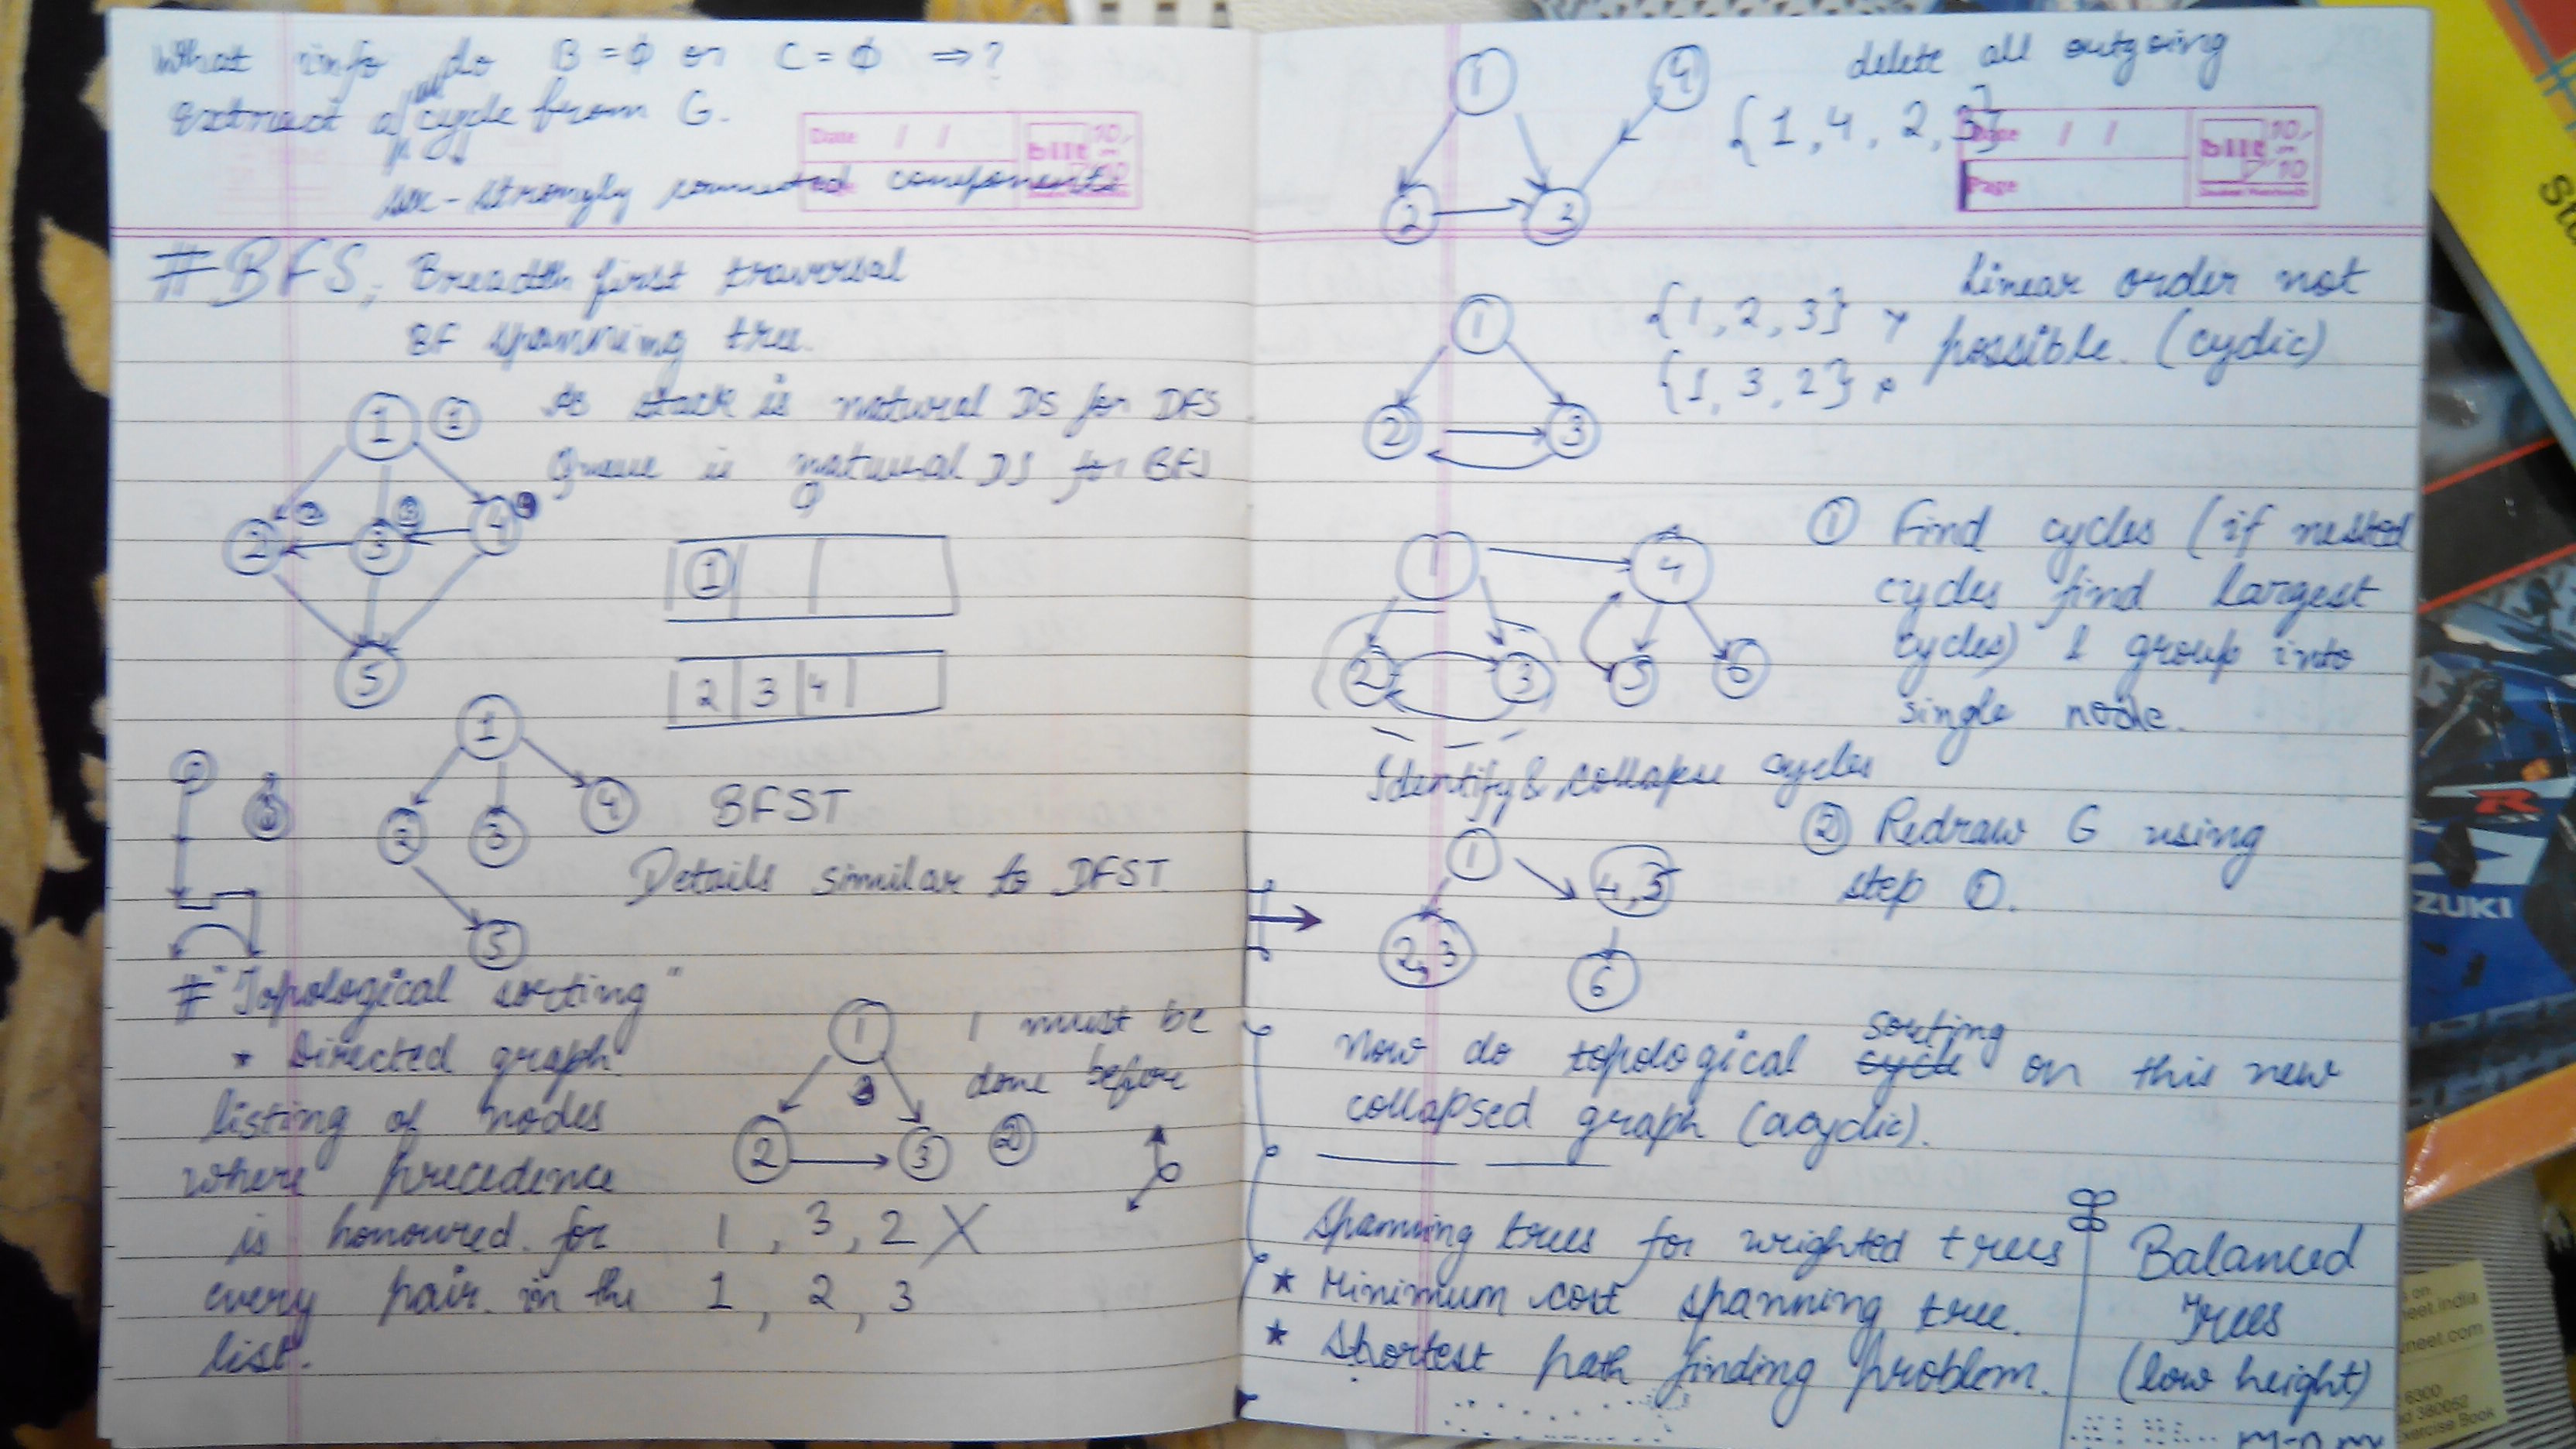 What info do B = ϕ or C = ϕ ⇒ ?
Extract a cycle from G.
scc - strongly connected components
Date / /
bilt
# BFS, Breadth first traversal
BF spanning tree.
As stack is natural DS for DFS
Queue is natural DS for BFS
1 1
2 2 3 3 4 4
5
Q
1
2 3 4
1
2 3 4
5
BFST
Details similar to DFST
# "Topological sorting"
* Directed graph
listing of nodes
where precedence
is honoured for
every pair in the
list.
1
2 3
1 must be
done before
2
1, 3, 2 X
1, 2, 3
1 4
2 3
delete all outgoing
{1, 4, 2, 3}
Page
bilt
1
2 3
{1, 2, 3} x
{1, 3, 2} x
Linear order not
possible. (cyclic)
1 4
2 3 5 6
① Find cycles (if nested
cycles find largest
cycles) & group into
single node.
Identify & collapse cycles
② Redraw G using
step ①.
1 4,5
2,3 6
Now do topological cycle sorting on this new
collapsed graph (acyclic).
Spanning trees for wrighted trees
* Minimum cost spanning tree.
* Shortest path finding problem.
Balanced
Trees
(low height)
ZUKI
R
neet.india
neet.com
6300
380052
Exercise Book